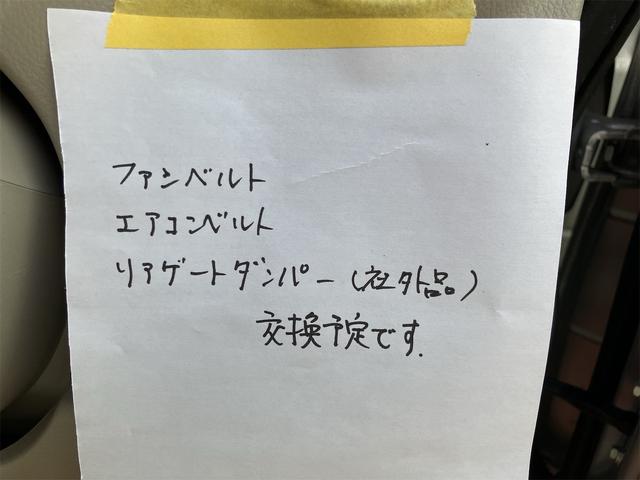 ファンベルト
エアコンベルト
リアゲートダンパー(社外品)
交換予定です.